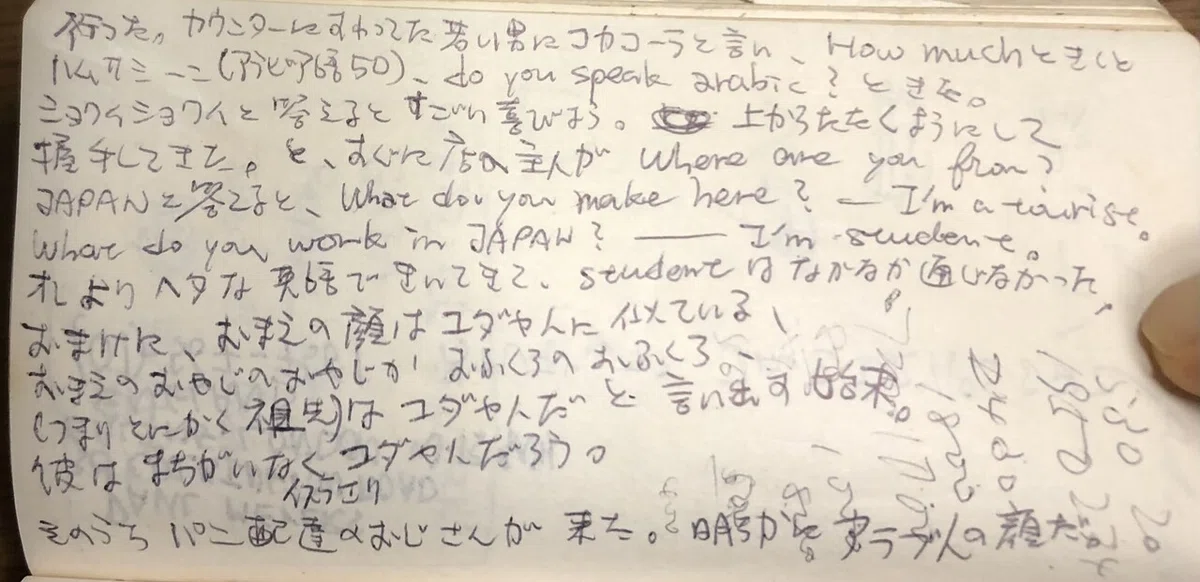 行った。カウンターにすわってた若い男にコカコーラと言い、How muchときくと
ハムサミーニ(アラビア語50)、do you speak arabic?ときた。
ショワイショワイと答えるとすごい喜びよう。上からたたくようにして
握手してきた。と、すぐに店の主人が Where are you from?
JAPANと答えると、What do you make here? — I'm a tourist。
What do you work in JAPAN? —— I'm student。
オレよりヘタな英語できいてきて、studentはなかなか通じなかった。
おまけに、おまえの顔はユダヤ人に似ている、
おまえのおやじのおやじか おふくろのおふくろ、
(つまりとにかく祖先)はユダヤ人だと言い出す始末。
彼はまちがいなくユダヤ人だろう。
イスラエリ
そのうち パン配達のおじさんが来た。明らかにアラブ人の顔だ。